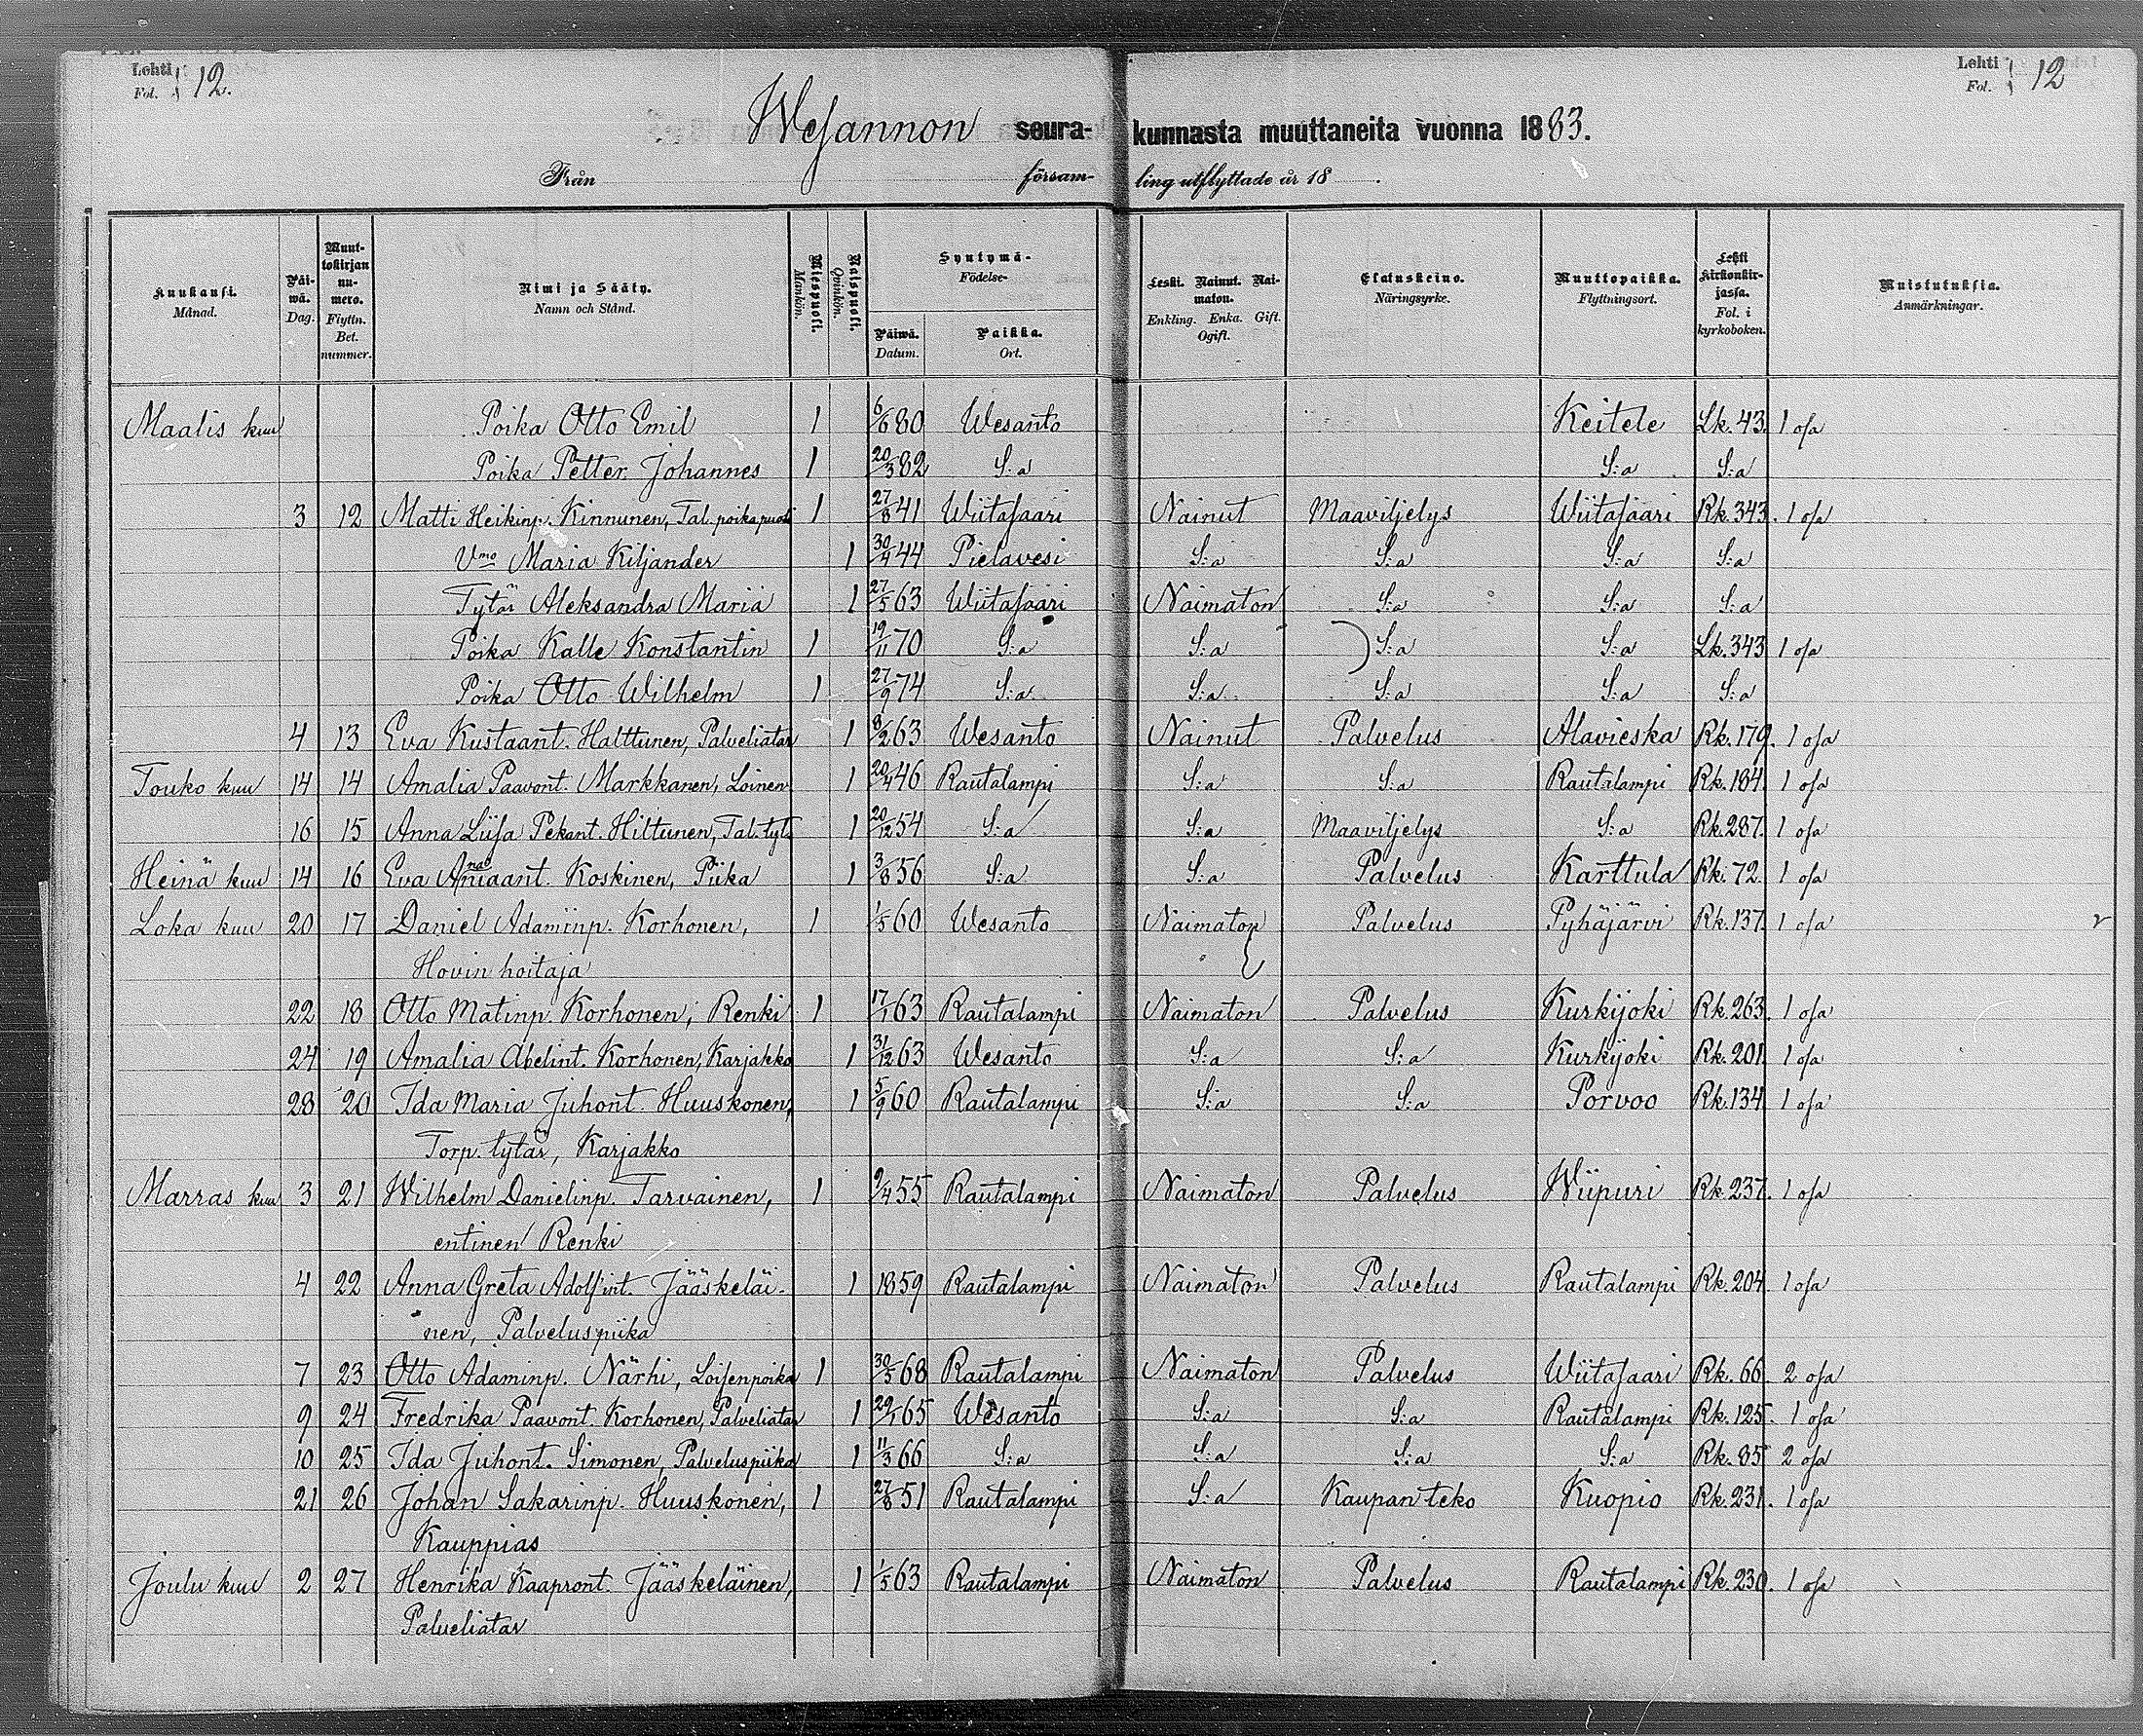 Lehti
Fol. } 12.
Lehti
Fol. } 12
Wesannon seura- kunnasta muuttaneita vuonna 1883.
Från församling utflyttade år 18
Kuukausi. Månad. | Päiwä. Dag. | Muuttokirjan numero. Flyttn. Bet. nummer. | Nimi ja Sääty. Namn och Stånd. | Miespuoli. Mankön. | Naispuoli. Qvinkön. | Syntymä- Födelse- Päiwä. Datum. | Paikka. Ort. | Leski. Nainut. Naimaton. Enkling. Enka. Gift. Ogift. | Elatuskeino. Näringsyrke. | Muuttopaikka. Flyttningsort. | Lehti kirkonkirjassa. Fol. i kyrkoboken. | Muistutuksia. Anmärkningar.
Maalis kuu Poika Otto Emil 1 6/6 80 Wesanto Keitele Lk. 43. 1 osa
Poika Petter Johannes 1 20/3 82 S:a S:a S:a
3 12 Matti Heikinp. Kinnunen, Tal. poikapuoli 1 27/8 41 Wiitasaari Nainut Maaviljelys Wiitasaari Rk. 343. 1 osa
Vmo Maria Kiljander 1 30/4 44 Pielavesi S:a S:a S:a S:a
Tytär Aleksandra Maria 1 27/5 63 Wiitasaari Naimaton S:a S:a S:a
Poika Kalle Konstantin 1 19/11 70 S:a S:a S:a S:a Lk. 343 1 osa
Poika Otto Wilhelm 1 27/9 74 S:a S:a S:a S:a S:a
4 13 Eva Kustaant. Halttunen, Palveliatar 1 8/2 63 Wesanto Nainut Palvelus Alavieska Rk. 179. 1 osa
Touko kuu 14 14 Amalia Paavont. Markkanen, Loinen 1 20/4 46 Rautalampi S:a S:a Rautalampi Rk. 184. 1 osa
16 15 Anna Liisa Pekant. Hiltunen, Tal. tyt. 1 20/12 54 S:a S:a Maaviljelys S:a Rk. 287. 1 osa
Heinä kuu 14 16 Eva Koskinen, Piika 1 3/8 56 S:a S:a Palvelus Karttula Rk. 72. 1 osa
Loka kuu 20 17 Daniel Adaminp. Korhonen, 1 1/5 60 Wesanto Naimaton Palvelus Pyhäjärvi Rk. 137. 1 osa
Hovin hoitaja
22 18 Otto Matinp. Korhonen, Renki 1 17/1 63 Rautalampi Naimaton Palvelus Kurkijoki Rk. 263. 1 osa
24 19 Amalia Abelint. Korhonen, Karjakko 1 31/12 63 Wesanto S:a S:a Kurkijoki Rk. 201. 1 osa
28 20 Ida Maria Juhont. Huuskonen, 1 5/9 60 Rautalampi S:a S:a Porvoo Rk. 134 1 osa
Torp. tytär, Karjakko
Marras kuu 3 21 Wilhelm Danielinp. Tarvainen, 1 9/4 55 Rautalampi Naimaton Palvelus Wiipuri Rk. 237. 1 osa
entinen Renki
4 22 Anna Greta Adolfint. Jääskeläi- 1 1859 Rautalampi Naimaton Palvelus Rautalampi Rk. 204. 1 osa
nen, Palveluspiika
7 23 Otto Adaminp. Närhi, Loisenpoika 1 30/5 68 Rautalampi Naimaton Palvelus Wiitasaari Rk. 66. 2 osa
9 24 Fredrika Paavont. Korhonen, Palveliatar 1 29/1 65 Wesanto S:a S:a Rautalampi Rk. 125. 1 osa
10 25 Ida Juhont. Simonen, Palveluspiika 1 11/3 66 S:a S:a S:a S:a Rk. 85 2 osa
21 26 Johan Sakarinp. Huuskonen, 1 27/8 51 Rautalampi S:a Kaupanteko Kuopio Rk. 231. 1 osa
Kauppias
Joulu kuu 2 27 Henrika Kaapront. Jääskeläinen, 1 1/5 63 Rautalampi Naimaton Palvelus Rautalampi Rk. 230. 1 osa
Palveliatar